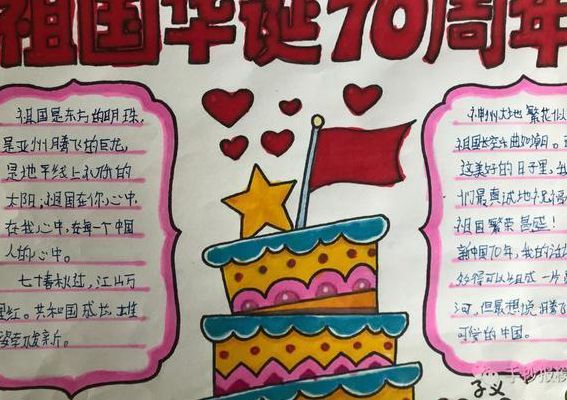 祖国华诞70周年
祖国是东方的明珠,
是亚州腾飞的巨龙,
是地平线上初升的
太阳,祖国在你心中
在我心中,在每一个中国
人的心中。
七十春秋过,江山万
里红。共和国成长雄
姿永焕新。
神州大地繁花似
祖国长空乐曲如潮。
这美好的日子里,我
们最真诚地祝福
祖国繁荣昌盛!
新中国70年,我的
多得可以组成一片
河,但最想说腾飞
可爱的中国。
子义
手抄报